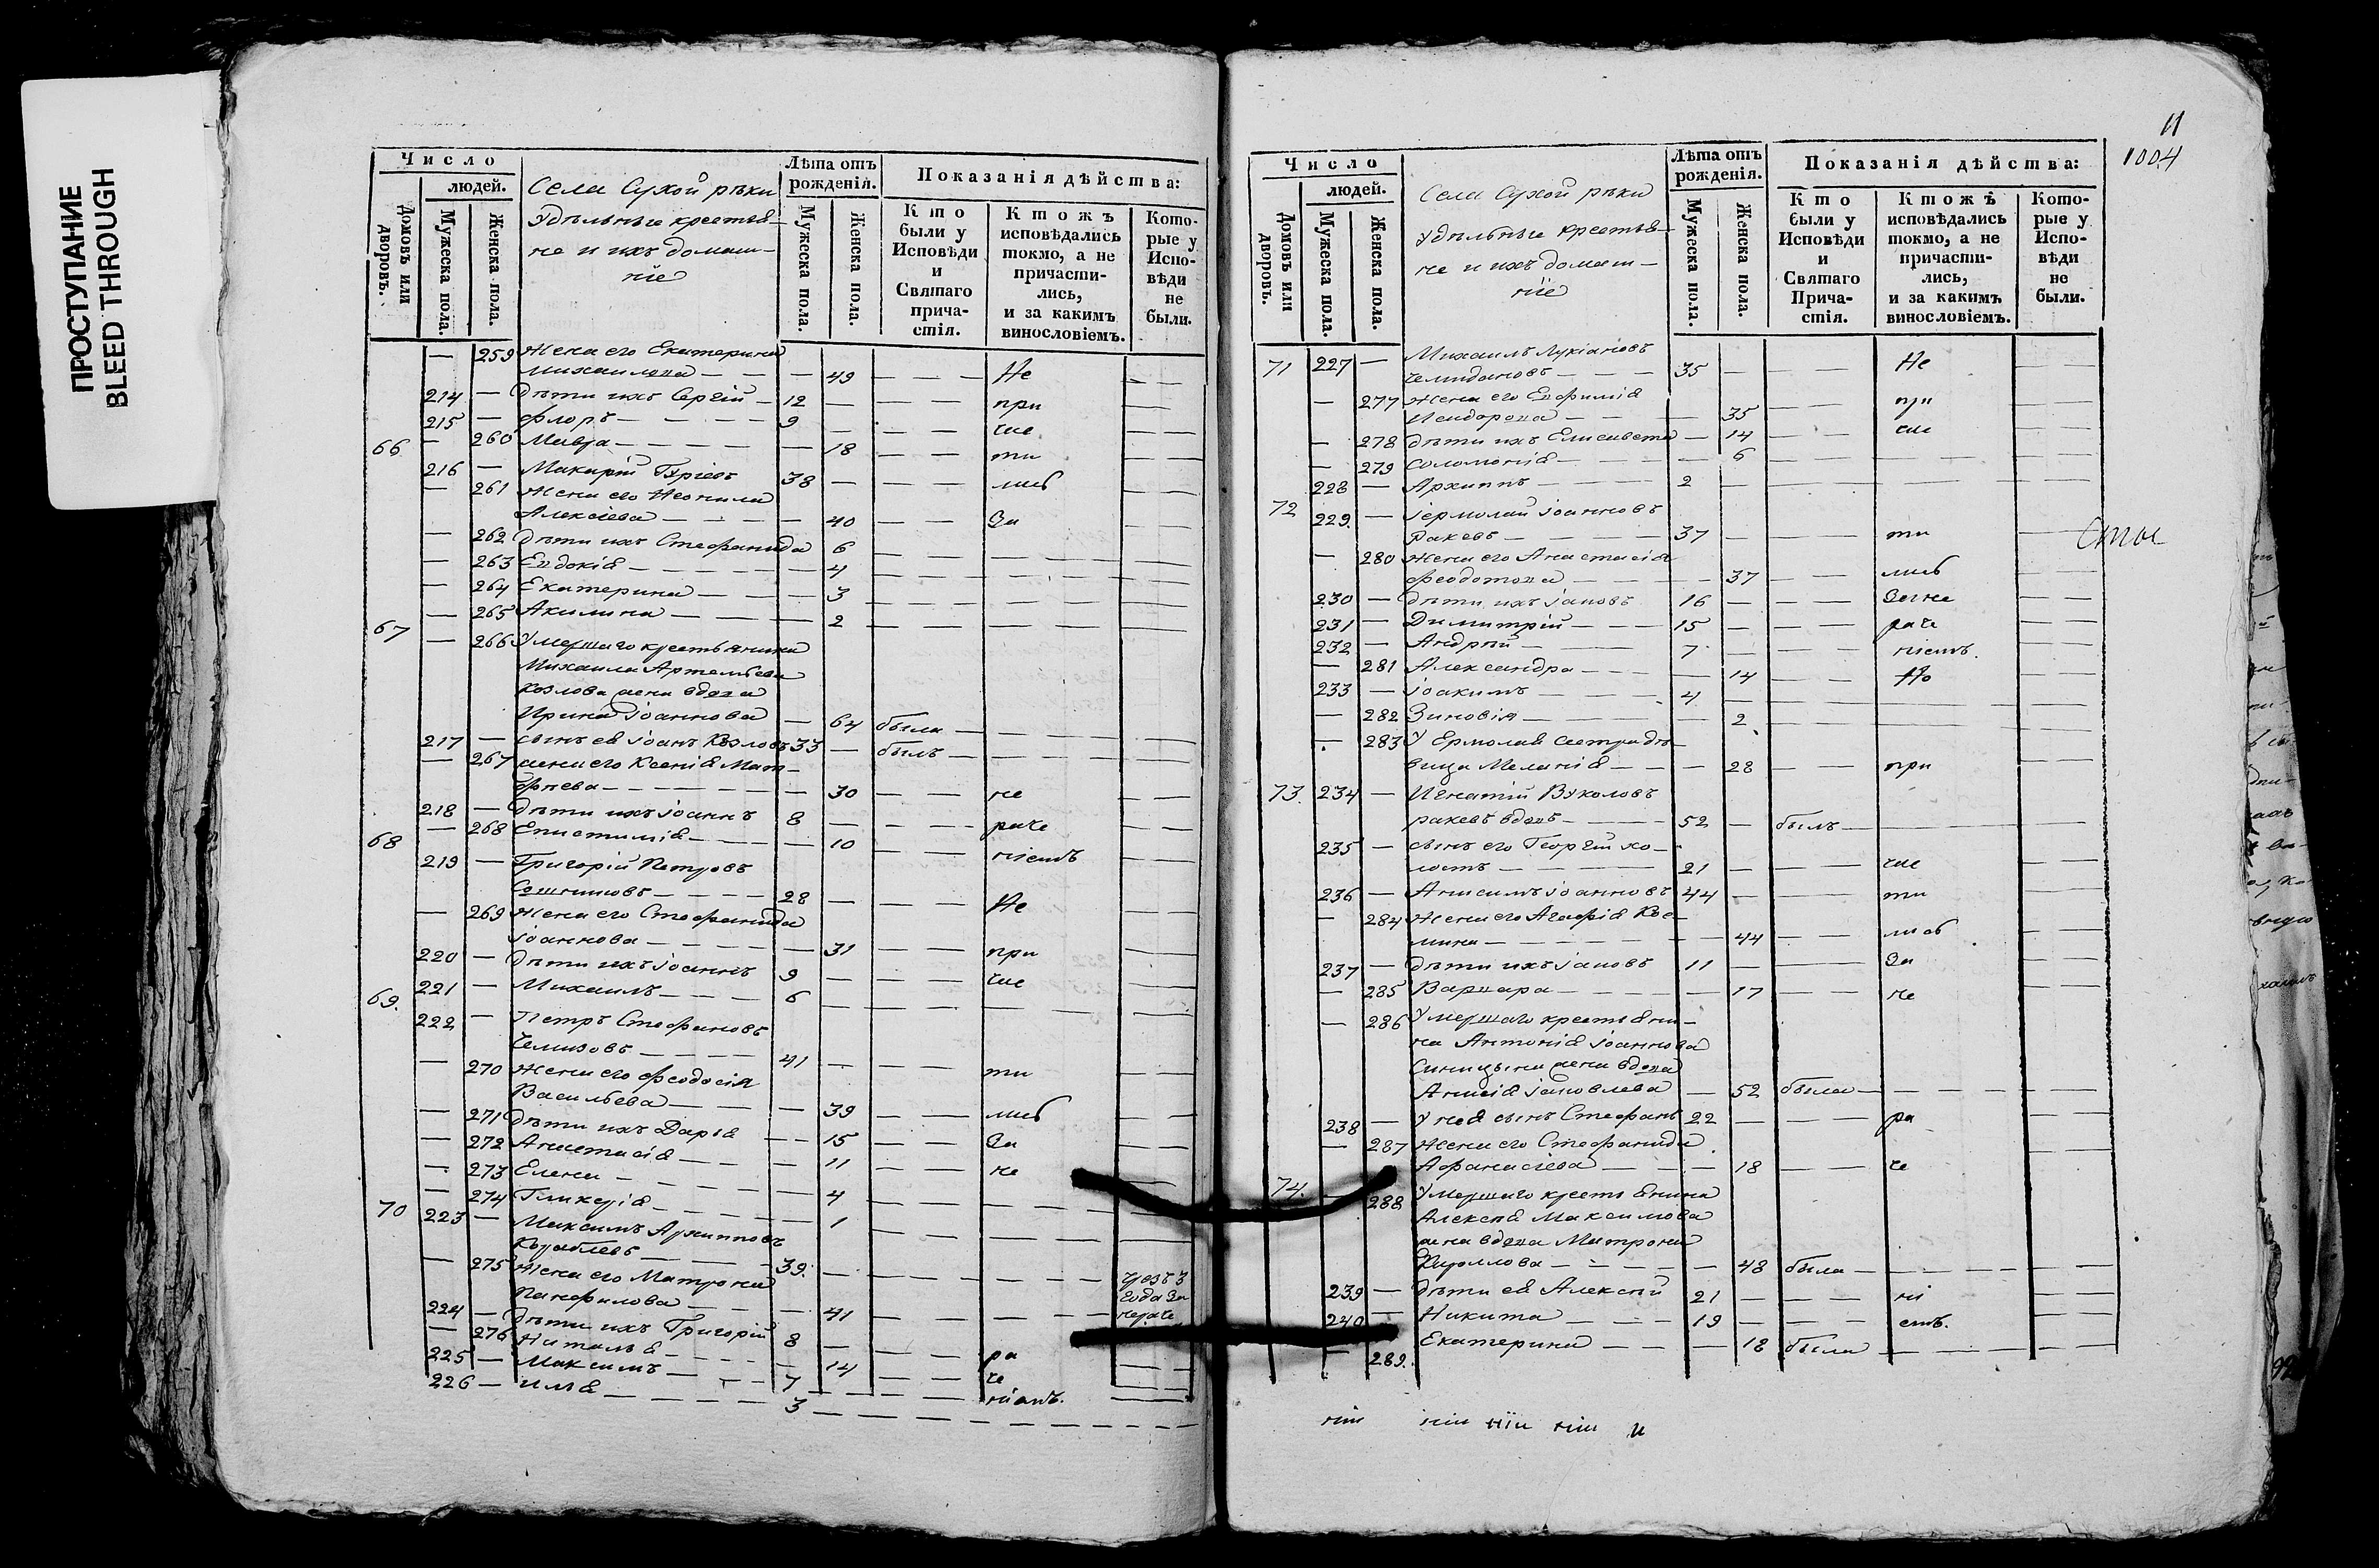 ПРОСТУПАНИЕ
BLEED THROUGH
Число
людей.
Домовъ или дворовъ.
Мужеска пола.
Женска пола.
Села Сухой рѣки
Удѣльные крестья-
не и ихъ домаш-
ніе
Лѣта отъ рожденія.
Мужеска пола.
Женска пола.
Показанія дѣйства:
Кто были у Исповѣди и Святаго прича-стія.
Ктожъ исповѣдались токмо, а не причасти-лись, и за какимъ винословіемъ.
Кото-рые у Испо-вѣди не были.
— 259 Жена его Екатерина
Михаилова — — — 49 — — — Не — —
214 — Дѣти ихъ Сергій — 12 — — — при — —
215 — Флоръ — — — 9 — — — час — —
— 260 Мавра — — — — 18 — — ти — —
66 216 — Макарій Гуріевъ 38 — — — лись — —
— 261 Жена его Неонила
Алексіева — — — 40 — — За — —
— 262 Дѣти ихъ Стефанида 6 — — —
— 263 Евдокія — — — 4 — — —
— 264 Екатерина — — — 3 — — —
— 265 Акилина — — — 2 — — —
67 — 266 Умершаго крестьянина
Михаила Артемьева
Козлова жена вдова
Ирина Іоаннова — 64 была — — —
217 — сынъ ея Іоанъ Козловъ 33 — былъ — — —
— 267 жена его Ксенія Мат-
фіева — — — 30 — — не — —
218 — Дѣти ихъ Іоаннъ 8 — — — раче — —
— 268 Епистимія — — — 10 — — ніемъ — —
68 219 — Григорій Петровъ
28 — — — Не — —
— 269 Жена его Стефанида
Іоаннова — — — 31 — — при — —
220 — Дѣти ихъ Іоаннъ 9 — — — час — —
221 — Михаилъ — — — 6 — — —
69. 222 — Петръ Стефановъ
41 — — — ти — —
— 270 Жена его Феодосія
Васильева — — — 39 — — лись — —
— 271 Дѣти ихъ Дарія — 15 — — За — —
— 272 Анастасія — — — 11 — — не — —
— 273 Елена — — — 4 — — —
— 274 Гликерія — — — 1 — — —
70 223 — Максимъ Архиповъ
Кораблевъ — — — 39. — — —
— 275 Жена его Матрона
Панфилова — — — 41 — — — чрезъ 3 года за нераче
224 — Дѣти ихъ Григорій 8 — — — ра — —
— 276 Наталья — — — 14 — — че — —
225 — Максимъ — — — 7 — — — ніемъ. —
226 — Илья — — — 3 — — —
11
1004
Число
людей.
Домовъ или дворовъ.
Мужеска пола.
Женска пола.
Села Сухой рѣки
Удѣльные крестья-
не и ихъ домаш-
ніе
Лѣта отъ рожденія.
Мужеска пола.
Женска пола.
Показанія дѣйства:
Кто были у Исповѣди и Святаго Прича-стія.
Ктожѣ исповѣдались токмо, а не причасти-лись, и за какимъ винословіемъ.
Кото-рые у Испо-вѣди не были.
71 227 — Михаилъ Лукіановъ
Чемидановъ — — — 35 — — — Не — —
— 277 Жена его Евфимія
Исидорова — — — 35 — — при — —
— 278 Дѣти ихъ Елисавета — 14 — — час — —
— 279 Соломонія — — — 6 — — —
228 — Архиппъ — — — 2 — — —
72 229. — Іермолай Іоанновъ
Ракевъ — — — 37 — — — ти — —
— 280 Жена его Анастасія
Феодотова — — — 37 — — лись — —
230 — Дѣти ихъ Іаковъ 16 — — — За не — —
231 — Димитрій — — — 15 — — — раче — —
232 — Андрей — — — 7 — — — ніемъ. — —
— 281 Александра — — — 14 — — Но — —
233 — Іоакимъ — — — 4 — — —
— 282 Зиновія — — — 2 — — —
— 283 У Ермолая сестра дѣ-
вица Меланія — — — 28 — — при — —
73. 234 — Игнатій Вуколовъ
ракевъ вдовъ — — — 52 — былъ — — —
235 — сынъ его Георгій хо-
лостъ — — — 21 — — — час — —
236 — Анисимъ Іоанновъ 44 — — — ти — —
— 284 Жена его Агафія Кос-
мина — — — 44 — — лись — —
237 — Дѣти ихъ Іаковъ 11 — — — За — —
— 285 Варвара — — — 17 — — не — —
— 286 Умершаго крестьяни-
на Антонія Іоаннова
Синицына жена вдова
Анисія Іаковлева — 52 была — — —
238 — У нея сынъ Стефанъ 22 — — — ра — —
— 287 Жена его Стефанида
Афанасіева — — — 18 — — че — —
74. — 288 Умершаго крестьянина
Алексѣя Максимова
жена вдова Матрона
Кириллова — — — 48 была — — —
239 — Дѣти ея Алексѣй 21 — — — ні — —
240 — Никита — — — 19 — — — емъ. — —
— 289. Екатерина — — — 18 была — — —